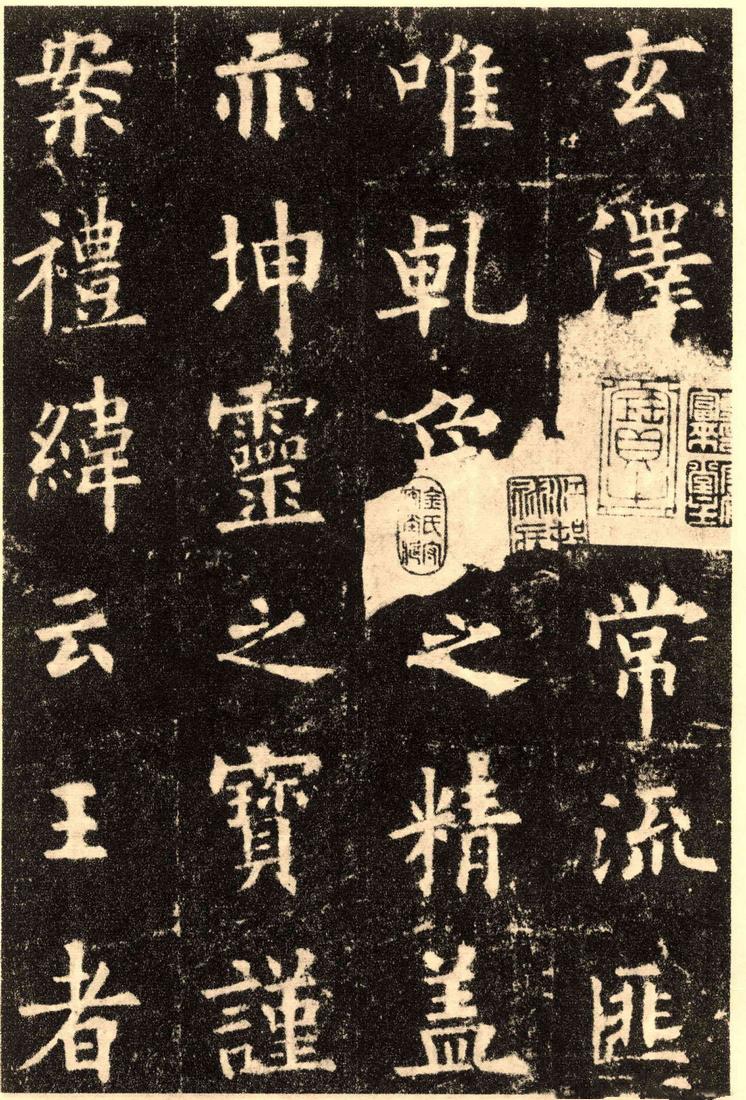 玄澤常流匪
唯乹象之精盖
亦坤靈之寶謹
案禮緯云王者